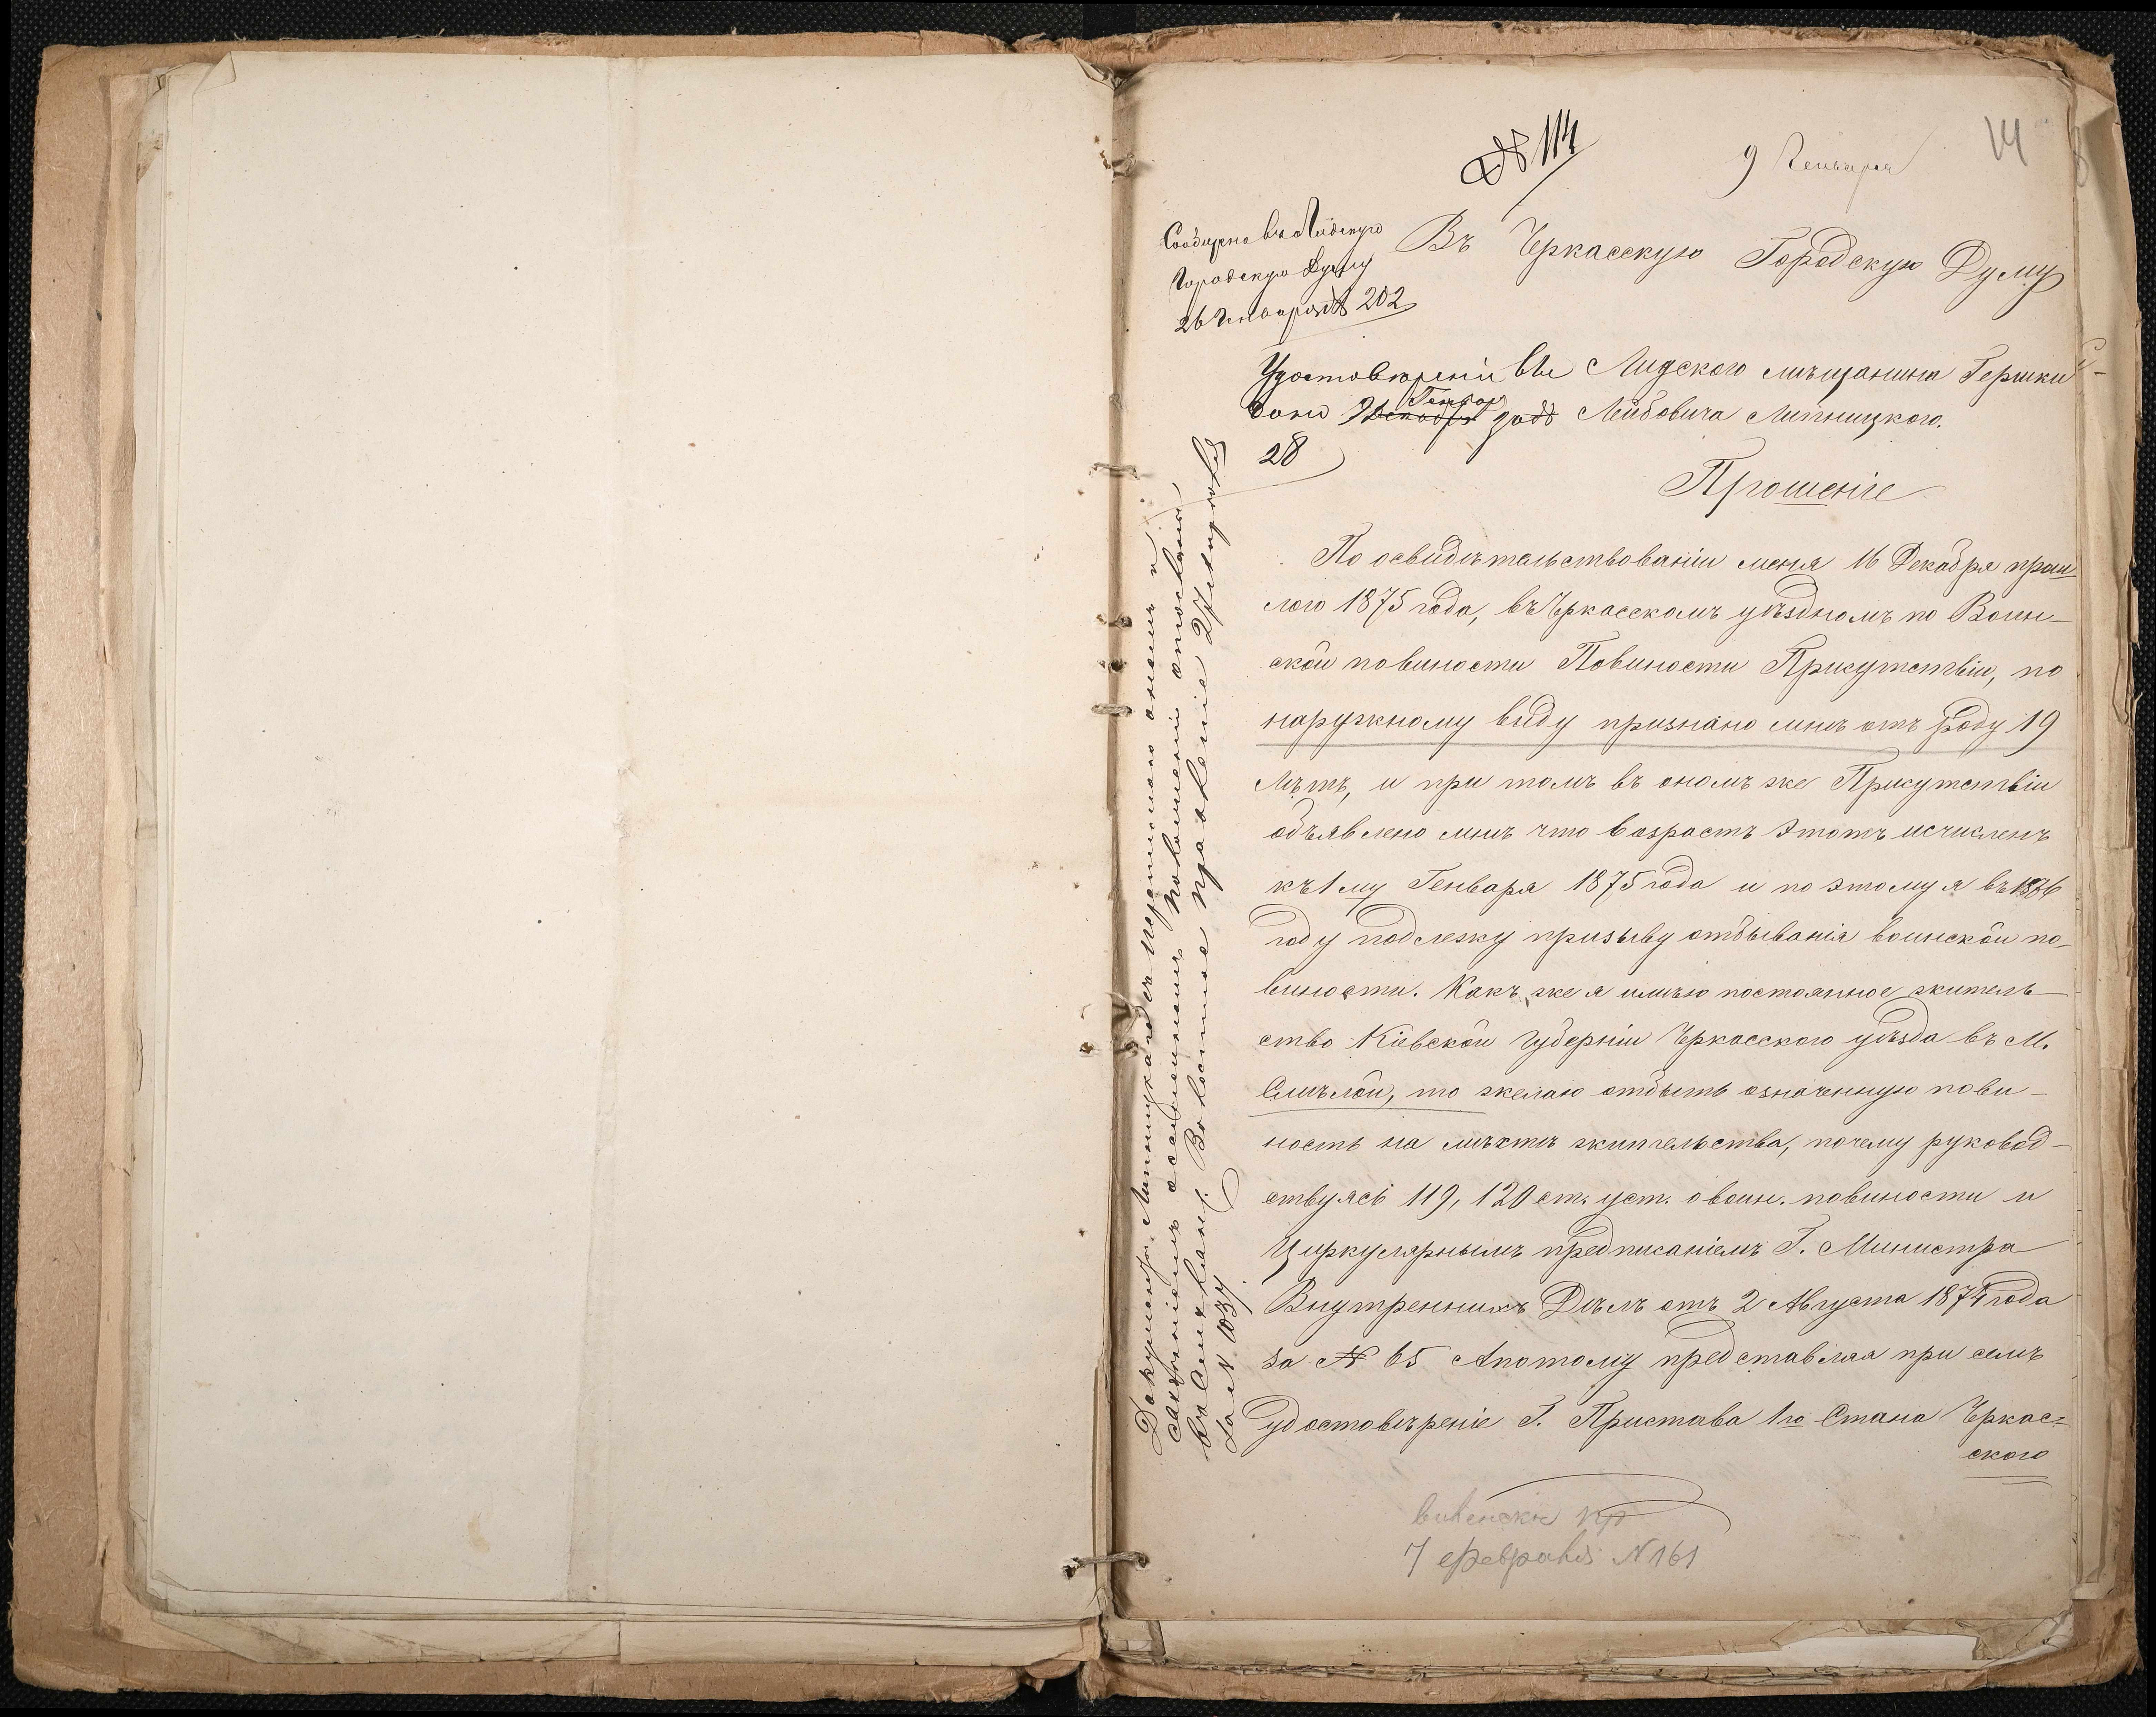 № 114
9 Генваря
14
Сообщено въ Лидскую
Городскую Думу
26 Генваря № 202
Въ Черкасскую Городскую Думу
Лидского мѣщанина Гершки
Лейбовича Липницкого.
Удостовѣреніе
Генвар
28
Прошеніе
По освидѣтельствованіи меня 16 Декабря прош-
лого 1875 года, въ Черкасскомъ уѣздномъ по Воин-
ской повиности Повиности Присутствіи, по
наружному виду признано мнѣ отъ роду 19
лѣтъ, и при томъ въ ономъ же Присутствіи
объявлено мнѣ что возрастъ этотъ исчисленъ
къ 1му Генваря 1875 года и по этому я въ 1876
году подлежу призыву отбыванія воинской по-
виности. Какъ же я имѣю постоянное житель-
ство Кіевской Губерніи Черкасского уѣзда въ М.
Смѣлой, то желаю отбыть означенную пови-
ность на мѣстѣ жительства, почему руковод-
ствуясь 119, 120 ст. уст. о воин. повиности и
Циркулярнымъ предписаніемъ Г. Министра
Внутреннихъ Дѣлъ отъ 2 Августа 1874 года
за № 65 Апотому представляя при семъ
удостовѣреніе Г. Пристава 1го Стана Черкас-
ского
7 февраля № 161
Документы Липницкаго съ перепискою
Волостное правленіе 27
за № 1034